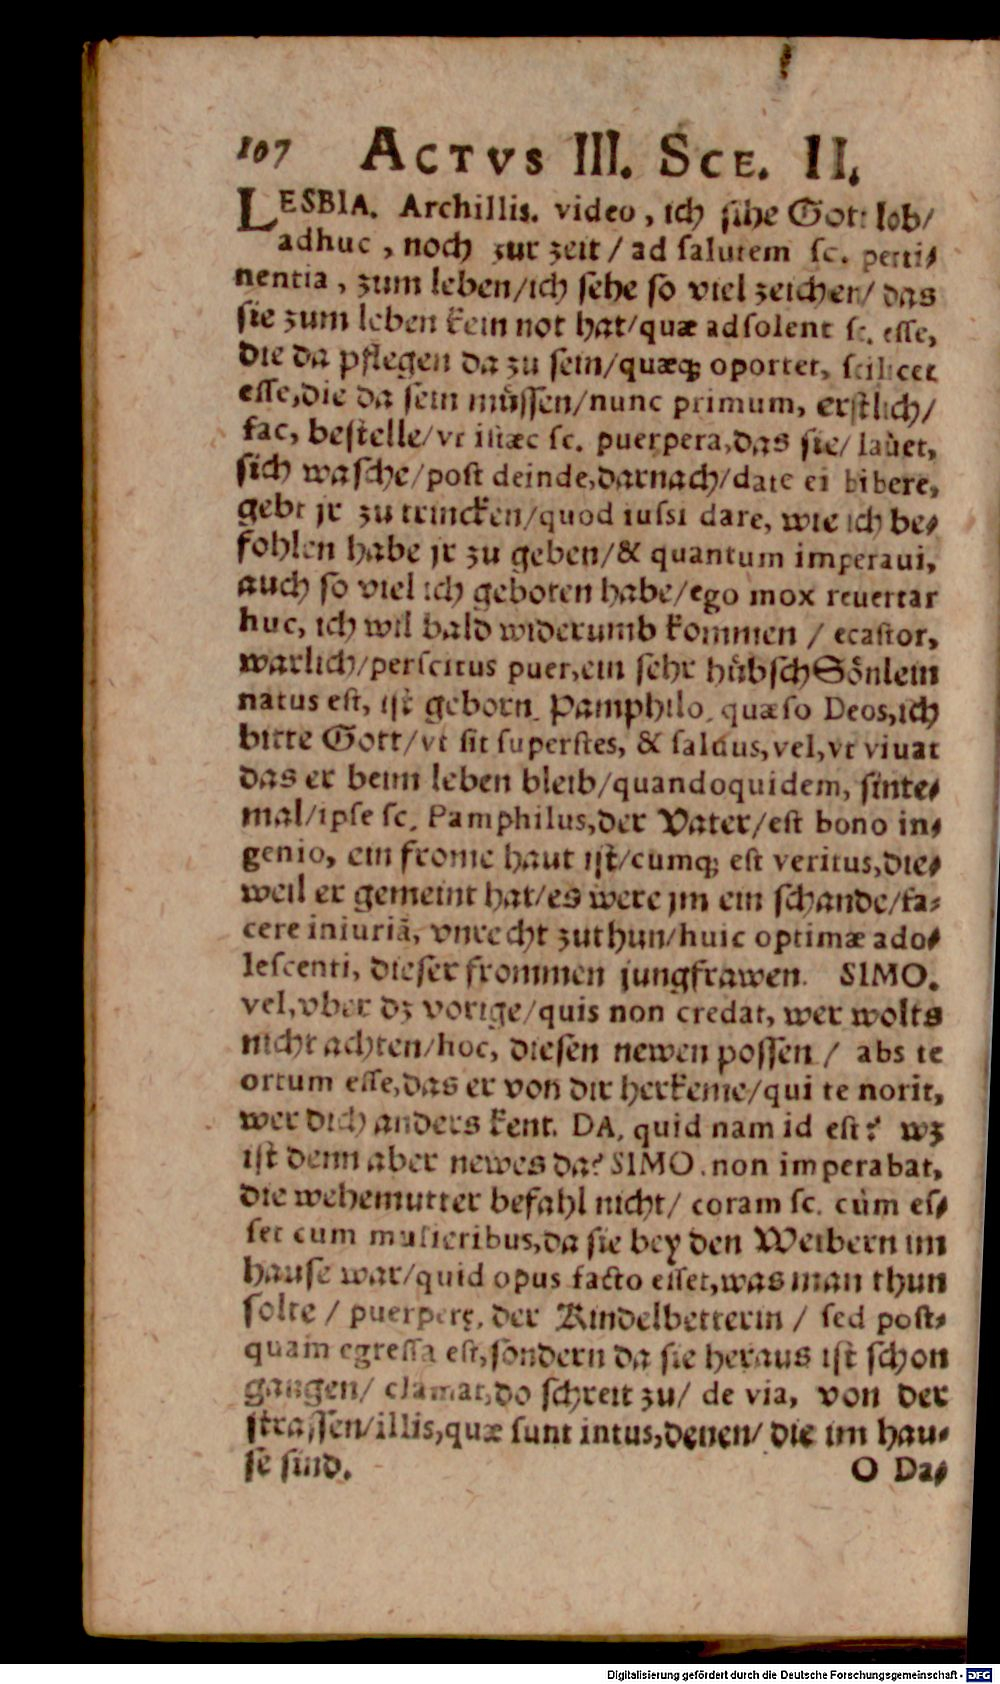 107 ACTVS III. SCE. II.
LESBIA. Archillis. video, ich sihe Gott lob/
adhuc, noch zur zeit / ad salutem sc. perti⸗
nentia, zum leben/ich sehe so viel zeichen/ das
sie zum leben kein not hat/quæ adsolent sc. esse,
die da pflegen da zu sein/quæq; oportet, scilicet
esse,die da sein müssen/nunc primum, erstlich/
fac, bestelle/vt istæc sc. puerpera,das sie/ lauet,
sich wasche/post deinde,darnach/date ei bibere,
gebt jr zu trincken/quod iussi dare, wie ich be⸗
fohlen habe jr zu geben/& quantum imperaui,
auch so viel ich geboten habe/ego mox reuertar
huc, ich wil bald widerumb kommen / ecastor,
warlich/perscitus puer,ein sehr hübsch Sönlein
natus est, ist geborn. Pamphilo, quæso Deos,ich
bitte Gott/vt sit superstes, & saluus,vel,vt viuat
das er beim leben bleib/quandoquidem, sinte⸗
mal/ipse sc. Pamphilus,der Vater/est bono in⸗
genio, ein frome haut ist/cumq; est veritus,die⸗
weil er gemeint hat/es were jm ein schande/fa⸗
cere iniuriã, vnrecht zuthun/huic optimæ ado⸗
lescenti, dieser frommen jungfrawen. SIMO.
vel,vber dz vorige/quis non credat, wer wolts
nicht achten/hoc, diesen newen possen / abs te
ortum esse,das er von dir herkeme/qui te norit,
wer dich anders kent. DA. quid nam id est? wz
ist denn aber newes da? SIMO. non imperabat,
die wehemutter befahl nicht/ coram sc. cùm es⸗
set cum mulieribus,da sie bey den Weibern im
hause war/quid opus facto esset,was man thun
solte / puerperę, der Kindelbetterin / sed post⸗
quam egressa est,sondern da sie heraus ist schon
gangen/ clamat,do schreit zu/ de via, von der
strassen/illis,quæ sunt intus,denen/ die im hau⸗
se sind.
O Da⸗
Digitalisierung gefördert durch die Deutsche Forschungsgemeinschaft - DFG